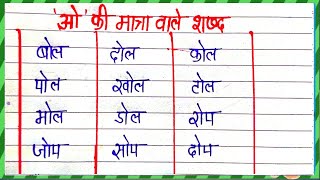 'ओ' की मात्रा वाले शब्द
बोल ढोल कोल
पोल खोल टोल
मोल डोल रोप
जोप सोप टोप